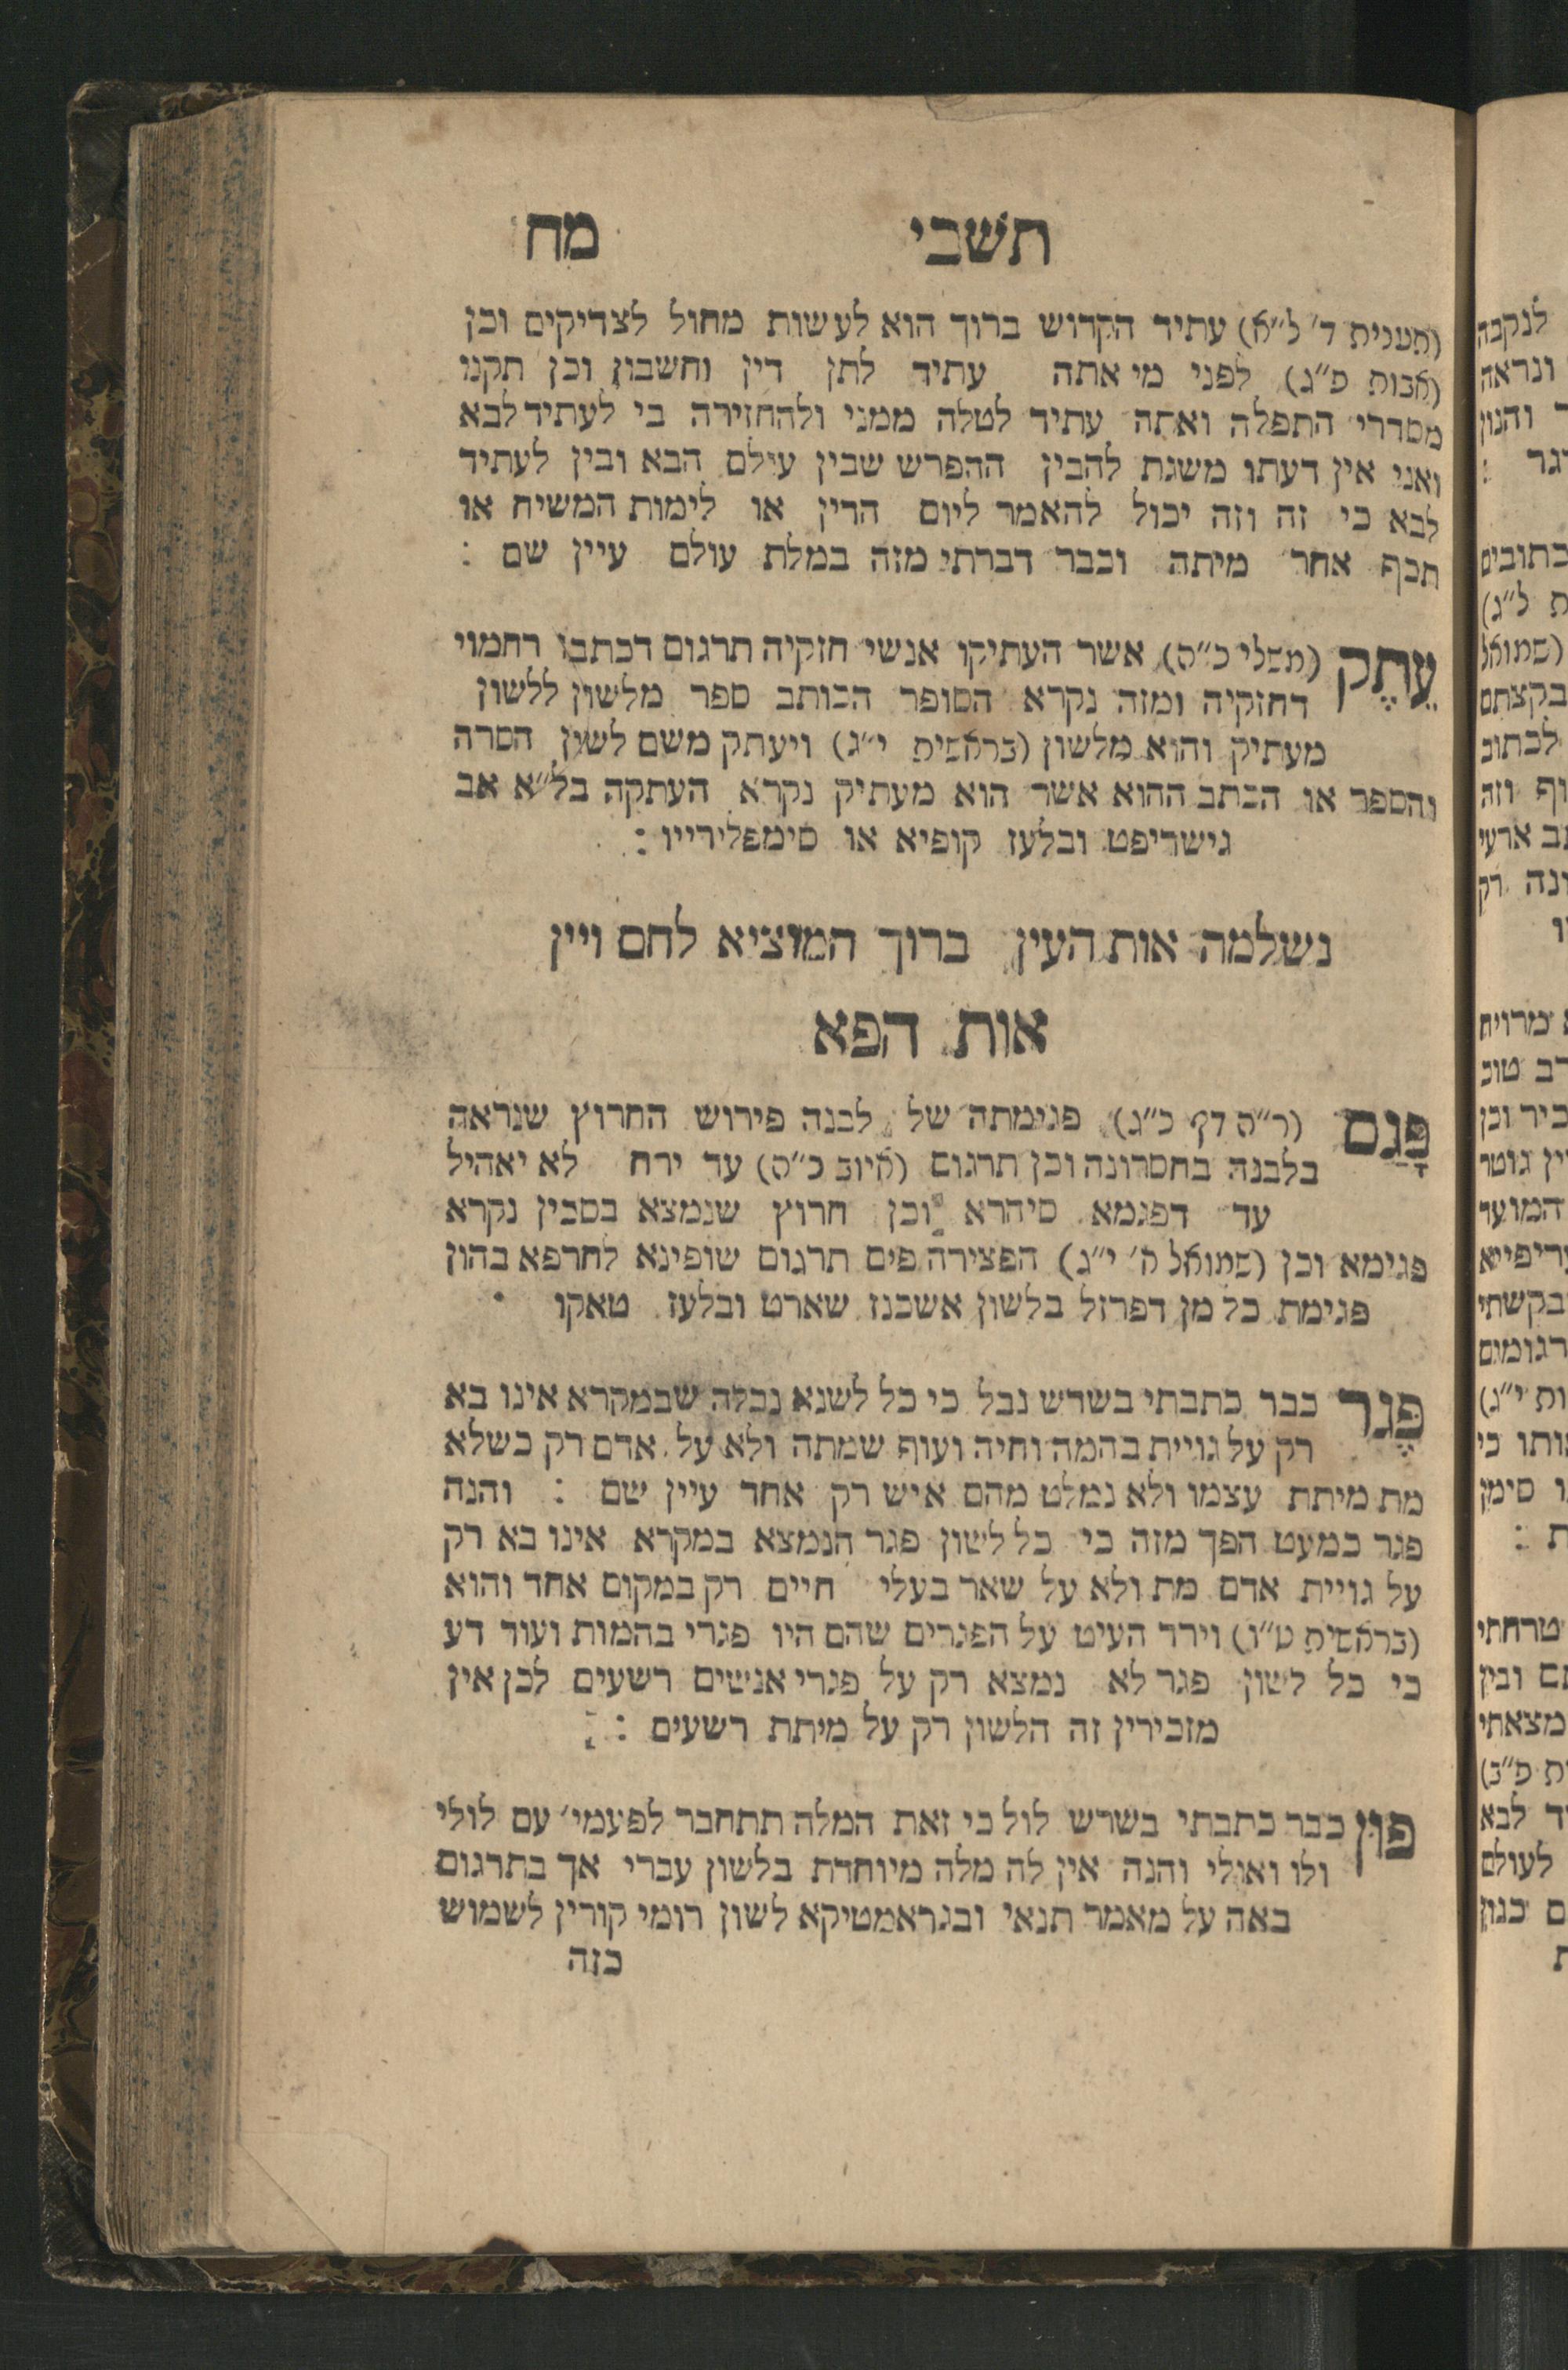 תשבי מח
(תענית ד' ל"א) עתיד הקדוש ברוך הוא לעשות מחול לצדיקים וכן
(אבות פ"ג) לפני מי אתה עתיד לתן דין וחשבון וכן תקנו
מסדרי התפלה ואתה עתיד לטלה ממני ולהחזירה בי לעתיד לבא
ואני אין דעתו משגת להבין ההפרש שבין עולם הבא ובין לעתיד
לבא כי זה וזה יכול להאמר ליום הדין או לימות המשיח או
תכף אחר מיתה וכבר דברתי מזה במלת עולם עיין שם :
עתק (משלי כ"ה) אשר העתיקו אנשי חזקיה תרגום דכתבו רחמוי
דחזקיה ומזה נקרא הסופר הכותב ספר מלשון ללשון
מעתיק והוא מלשון (בראשית י"ג) ויעתק משם לשון הסרה
והספר או הכתב ההוא אשר הוא מעתיק נקרא העתקה בל"א אב
גישריפט ובלעז קופיא או סימפלירייו :
נשלמה אות העין ברוך המוציא לחם ויין
אות הפא
פָּגַם (ר"ה דף כ"ג) פגימתה של לבנה פירוש החרוץ שנראה
בלבנה בחסרונה וכן תרגום (איוב כ"ה) עד ירח לא יאהיל
עד דפגמא סיהרא וכן חרוץ שנמצא בסכין נקרא
פגימא וכן (שמואל א' י"ג) הפצירה פים תרגום שופינא לחרפא בהון
פגימת כל מן דפרזל בלשון אשכנז שארט ובלעז טאקו
פֶּגֶר כבר כתבתי בשרש נבל כי כל לשנא נבלה שבמקרא אינו בא
רק על גויית בהמה וחיה ועוף שמתה ולא על אדם רק כשלא
מת מיתת עצמו ולא נמלט מהם איש רק אחד עיין שם : והנה
פגר כמעט הפך מזה כי כל לשון פגר הנמצא במקרא אינו בא רק
על גויית אדם מת ולא על שאר בעלי חיים רק במקום אחד והוא
(בראשית ט"ו) וירד העיט על הפגרים שהם היו פגרי בהמות ועוד דע
כי כל לשון פגר לא נמצא רק על פגרי אנשים רשעים לכן אין
מזכירין זה הלשון רק על מיתת רשעים :
פון כבר כתבתי בשרש לול כי זאת המלה תתחבר לפעמי' עם לולי
ולו ואולי והנה אין לה מלה מיוחדת בלשון עברי אך בתרגום
באה על מאמר תנאי ובגראמטיקא לשון רומי קורין לשמוש
כזה